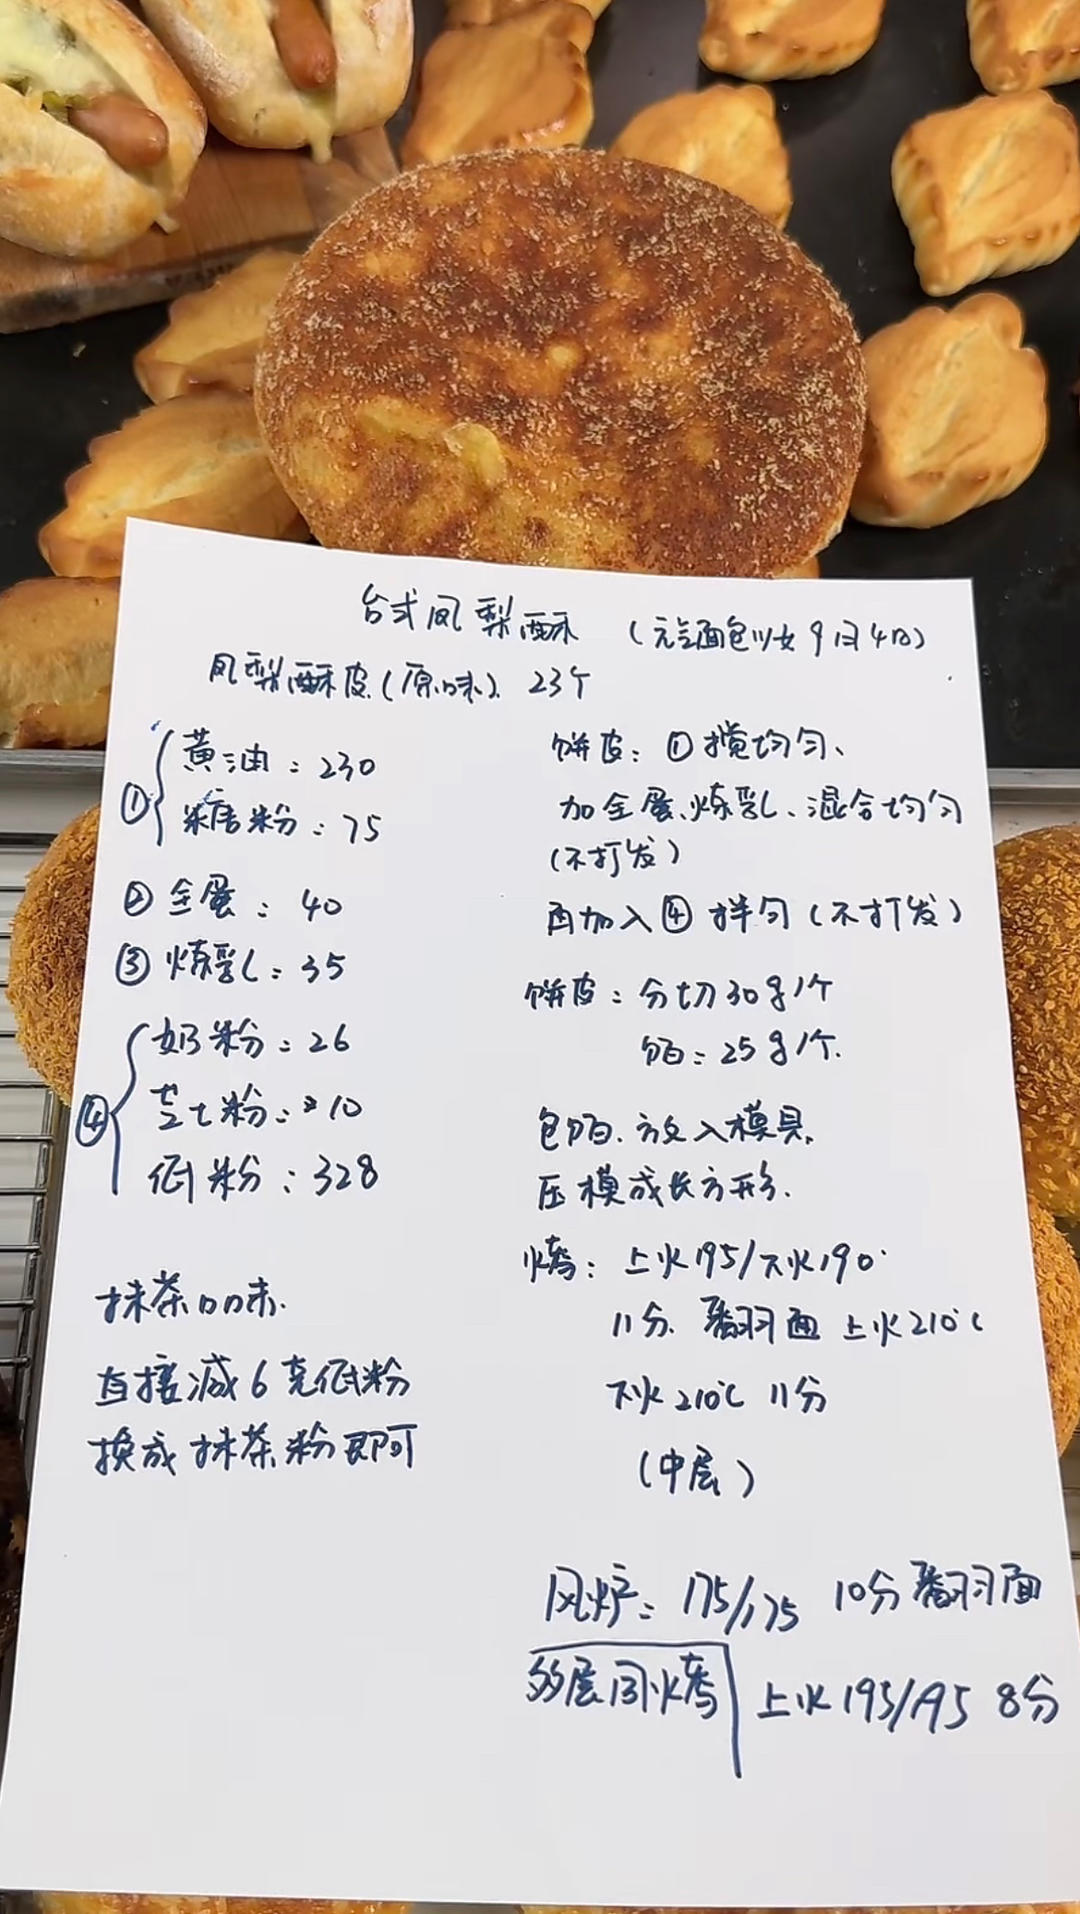 台式凤梨酥 (元气面包少女9月4日)
凤梨酥皮(原味) 23个
① 黄油：230
糖粉：75
② 全蛋：40
③ 炼乳：35
④ 奶粉：26
芝士粉：10
低粉：328
抹茶口味.
直接减6克低粉
换成抹茶粉即可
饼皮：①搅均匀、
加全蛋、炼乳、混合均匀
(不打发)
再加入④拌匀(不打发)
饼皮：分切30g/个
馅：25g/个.
包馅.放入模具,
压模成长方形.
烤：上火195/下火190°
11分.翻面 上火210℃
下火210℃ 11分
(中层)
风炉：175/175 10分翻面
多层同烤 上火195/195 8分